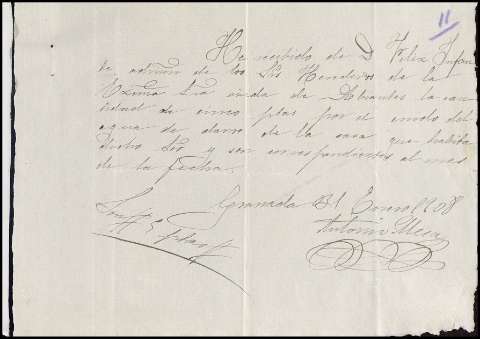 11
He recibido de D Felix Infan
te admor de los Srs Herederos de la
Exma Sra viuda de Abrantes la can
tidad de cinco ptas por el
agua de
de la casa que habita
dicho Sr y son correspondientes al mes
de la fecha.
Granada 31 Enero 1908
Antonio Meca
Son 5 Ptas